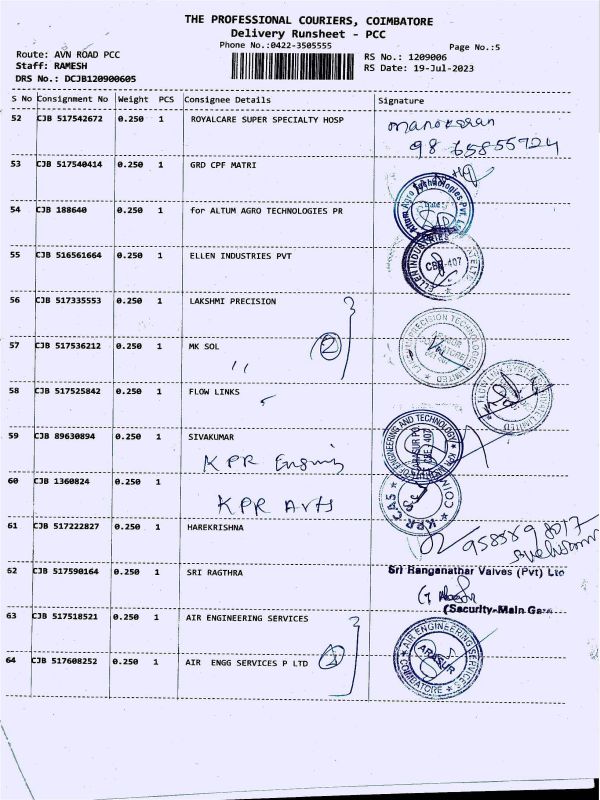 THE PROFESSIONAL COURIERS, COIMBATORE
Delivery Runsheet - PCC
Phone No.:0422-3505555
Page No.:5
Route: AVN ROAD PCC
Staff: RAMESH
DRS No.: DCJB120900605
RS No.: 1209006
RS Date: 19-Jul-2023
S No Consignment No Weight PCS Consignee Details Signature
52 CJB 517542672 0.250 1 ROYALCARE SUPER SPECIALTY HOSP
98 65855724
53 CJB 517540414 0.250 1 GRD CPF MATRI
54 CJB 188640 0.250 1 for ALTUM AGRO TECHNOLOGIES PR
Altum Agro Technologies Pvt. Ltd
55 CJB 516561664 0.250 1 ELLEN INDUSTRIES PVT
ELLEN INDUSTRIES
CBE-407
56 CJB 517335553 0.250 1 LAKSHMI PRECISION
57 CJB 517536212 0.250 1 MK SOL
2
PRECISION TECHNOLOGIES LIMITED
ARASUR
COIMBATORE
58 CJB 517525842 0.250 1 FLOW LINKS
59 CJB 89630894 0.250 1 SIVAKUMAR
KPR
OF ENGINEERING AND TECHNOLOGY
ARASUR PO
CBE 407
60 CJB 1360824 0.250 1
KPR Arts
KPR CAS
61 CJB 517222827 0.250 1 HAREKRISHNA
62 CJB 517590164 0.250 1 SRI RAGTHRA
Sri Ranganathar Valves (Pvt) Ltd
(Security-Main Gate
63 CJB 517518521 0.250 1 AIR ENGINEERING SERVICES
64 CJB 517608252 0.250 1 AIR ENGG SERVICES P LTD
AIR ENGINEERING SERVICES
ARASUR
COIMBATORE